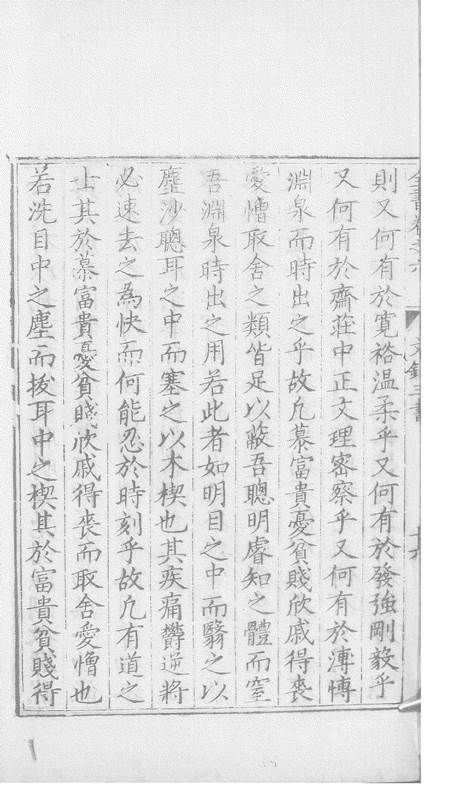 則又何有於寬裕温柔乎又何有於發強剛毅乎
又何有於齋莊中正文理密察乎又何有於溥博
淵泉而時出之乎故凡慕富貴憂貧賤欣戚得喪
愛憎取舍之類皆足以蔽吾聰明睿知之體而窒
吾淵泉時出之用若此者如明目之中而翳之以
塵沙聰耳之中而塞之以木楔也其疾痛鬱逆將
必速去之為快而何能忍於時刻乎故凡有道之
士其於慕富貴憂貧賤欣戚得喪而取舍愛憎也
若洗目中之塵而拔耳中之楔其於富貴貧賤得